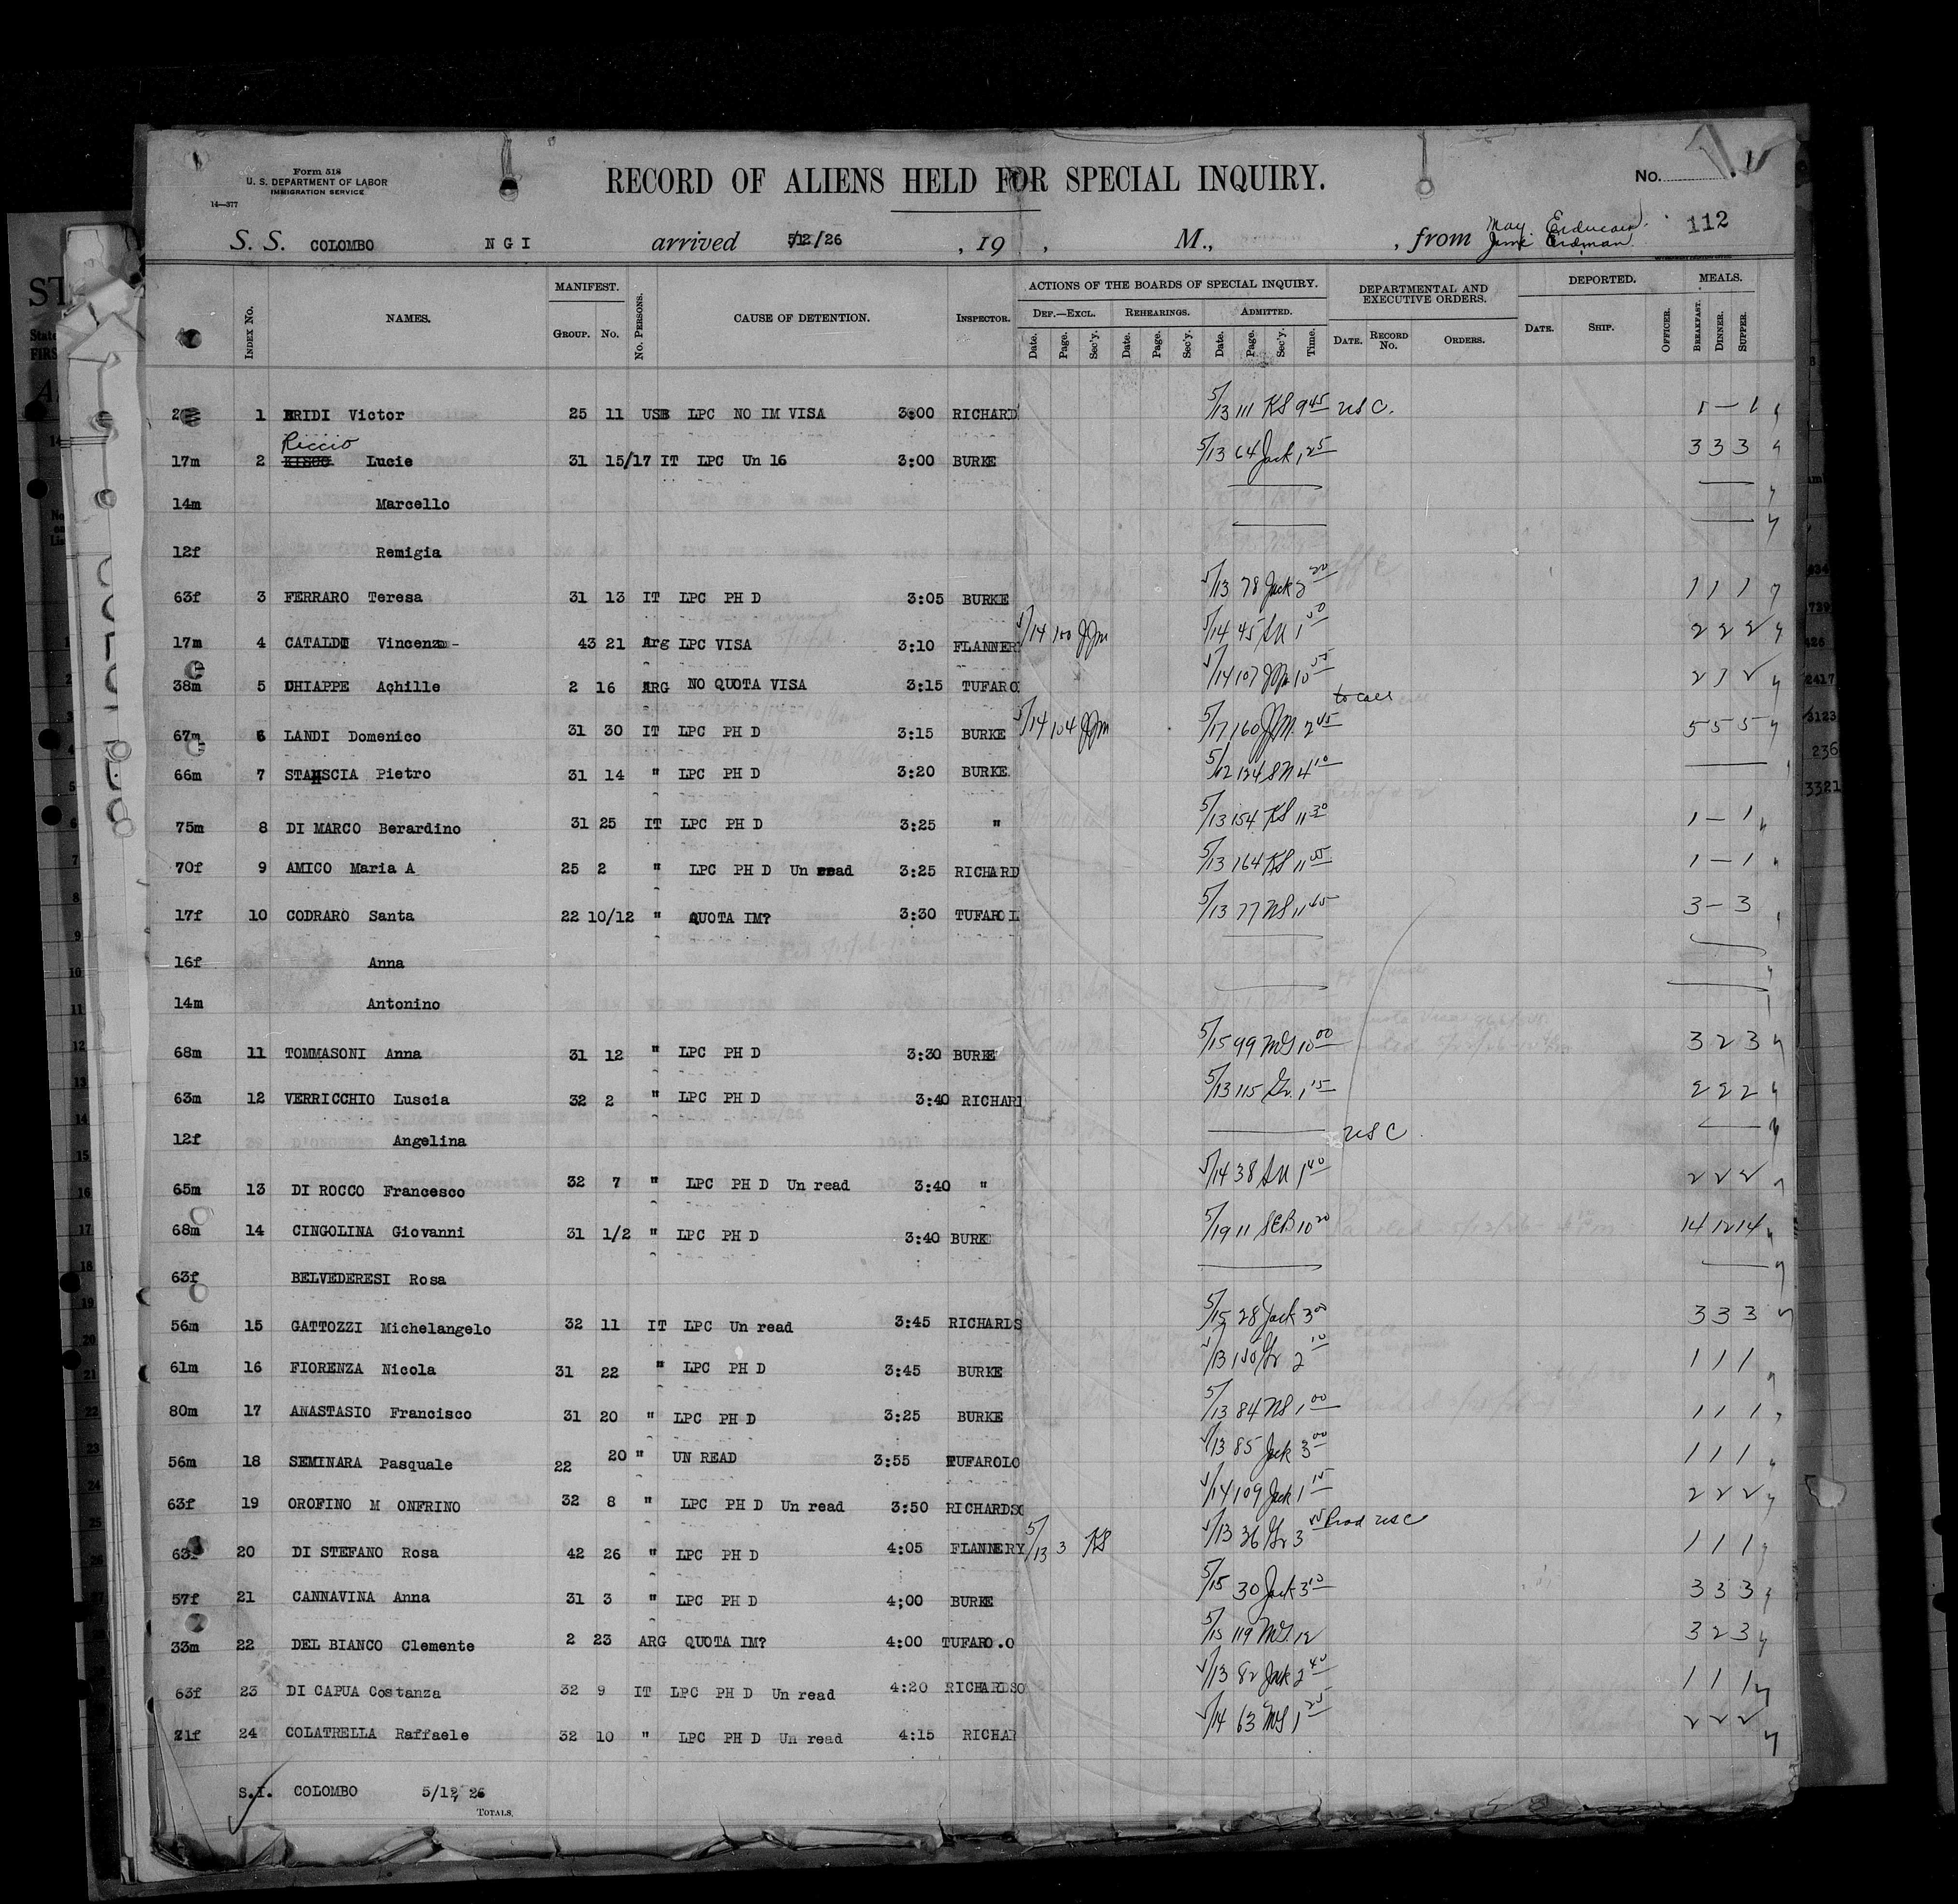 Form 518
U. S. DEPARTMENT OF LABOR
IMMIGRATION SERVICE
14—377
RECORD OF ALIENS HELD FOR SPECIAL INQUIRY.
No.
S. S. COLOMBO N G I arrived 5/12/26 , 19 , M., , from May 112
MANIFEST. ACTIONS OF THE BOARDS OF SPECIAL INQUIRY. DEPARTMENTAL AND EXECUTIVE ORDERS. DEPORTED. MEALS.
Index No. NAMES. GROUP. No. No. PERSONS. CAUSE OF DETENTION. INSPECTOR. DEF.—EXCL. REHEARINGS. ADMITTED.
Date. Page. Sec'y. Date. Page. Sec'y. Date. Page. Sec'y. Time. DATE. RECORD No. ORDERS. DATE. SHIP. OFFICER. BREAKFAST. DINNER. SUPPER.
1 BRIDI Victor 25 11 USB LPC NO IM VISA 3:00 RICHARD 5/13 111 KS 9 45 USC. 1 — 1
Riccio
17m 2 Lucie 31 15/17 IT LPC Un 16 3:00 BURKE 5/13 64 Jack 1 25 3 3 3
14m Marcello
12f Remigia
63f 3 FERRARO Teresa 31 13 IT LPC PH D 3:05 BURKE 5/13 78 Jack 2 20 1 1 1
17m 4 CATALDI Vincenzo - 43 21 Arg LPC VISA 3:10 FLANNER 5/14 100 JJM 5/14 45 SM 1 50 2 2 2
38m 5 CHIAPPE Achille 2 16 ARG NO QUOTA VISA 3:15 TUFARO 5/14 107 JJM 10 55 2 1 2
67m 6 LANDI Domenico 31 30 IT LPC PH D 3:15 BURKE 5/14 104 JJM 5/17 160 JJM. 2 45 5 5 5
66m 7 STANSCIA Pietro 31 14 " LPC PH D 3:20 BURKE 5/12 124 SM 4 10
75m 8 DI MARCO Berardino 31 25 IT LPC PH D 3:25 " 5/13 154 KS 11 30 1 — 1
70f 9 AMICO Maria A 25 2 " LPC PH D Un read 3:25 RICHARD 5/13 164 KS 11 55 1 — 1
17f 10 CODRARO Santa 22 10/12 " QUOTA IM? 3:30 TUFARO L 5/13 77 NS 11 45 3 — 3
16f Anna
14m Antonino
68m 11 TOMMASONI Anna 31 12 " LPC PH D 3:30 BURKE 5/15 99 MG 10 00 3 2 3
63m 12 VERRICCHIO Luscia 32 2 " LPC PH D 3:40 RICHARD 5/13 115 Gr. 1 15 2 2 2
12f Angelina USC
65m 13 DI ROCCO Francesco 32 7 " LPC PH D Un read 3:40 " 5/14 38 SM 1 40 2 2 2
68m 14 CINGOLINA Giovanni 31 1/2 " LPC PH D 3:40 BURKE 5/19 11 SEB 10 20 14 12 14
63f BELVEDERESI Rosa
56m 15 GATTOZZI Michelangelo 32 11 IT LPC Un read 3:45 RICHARDS 5/15 28 Jack 3 00 3 3 3
61m 16 FIORENZA Nicola 31 22 " LPC PH D 3:45 BURKE 5/13 150 Gr 2 10 1 1 1
80m 17 ANASTASIO Francisco 31 20 " LPC PH D 3:25 BURKE 5/13 84 NS 1 00 1 1 1
56m 18 SEMINARA Pasquale 22 20 " UN READ 3:55 TUFAROLO 5/13 85 Jack 3 00 1 1 1
63f 19 OROFINO M ONFRINO 32 8 " LPC PH D Un read 3:50 RICHARDSO 5/14 109 Jack 1 15 2 2 2
63f 20 DI STEFANO Rosa 42 26 " LPC PH D 4:05 FLANNERY 5/13 3 KS 5/13 36 Gr 3 USC 1 1 1
57f 21 CANNAVINA Anna 31 3 " LPC PH D 4;00 BURKE 5/15 30 Jack 3 10 3 3 3
33m 22 DEL BIANCO Clemente 2 23 ARG QUOTA IM? 4:00 TUFARO.O 5/15 119 MG. 12 3 2 3
63f 23 DI CAPUA Costanza 32 9 IT LPC PH D Un read 4:20 RICHARDSO 5/13 82 Jack 2 40 1 1 1
21f 24 COLATRELLA Raffaele 32 10 " LPC PH D Un read 4:15 RICHAR 5/14 63 MG 1 25 2 2 2
S.I. COLOMBO 5/12 26
TOTALS,